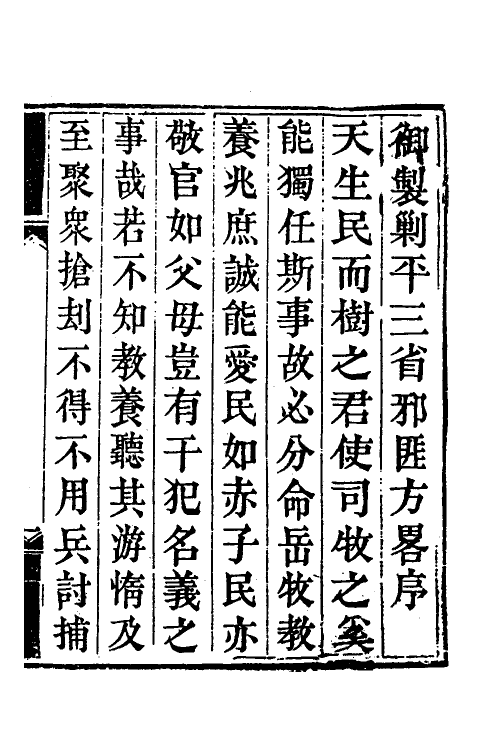 御製剿平三省邪匪方畧序
天生民而樹之君使司牧之奚
能獨任斯事故必分命岳牧教
養兆庶誠能愛民如赤子民亦
敬官如父母豈有干犯名義之
事哉若不知教養聽其游惰及
至聚衆搶刦不得不用兵討捕